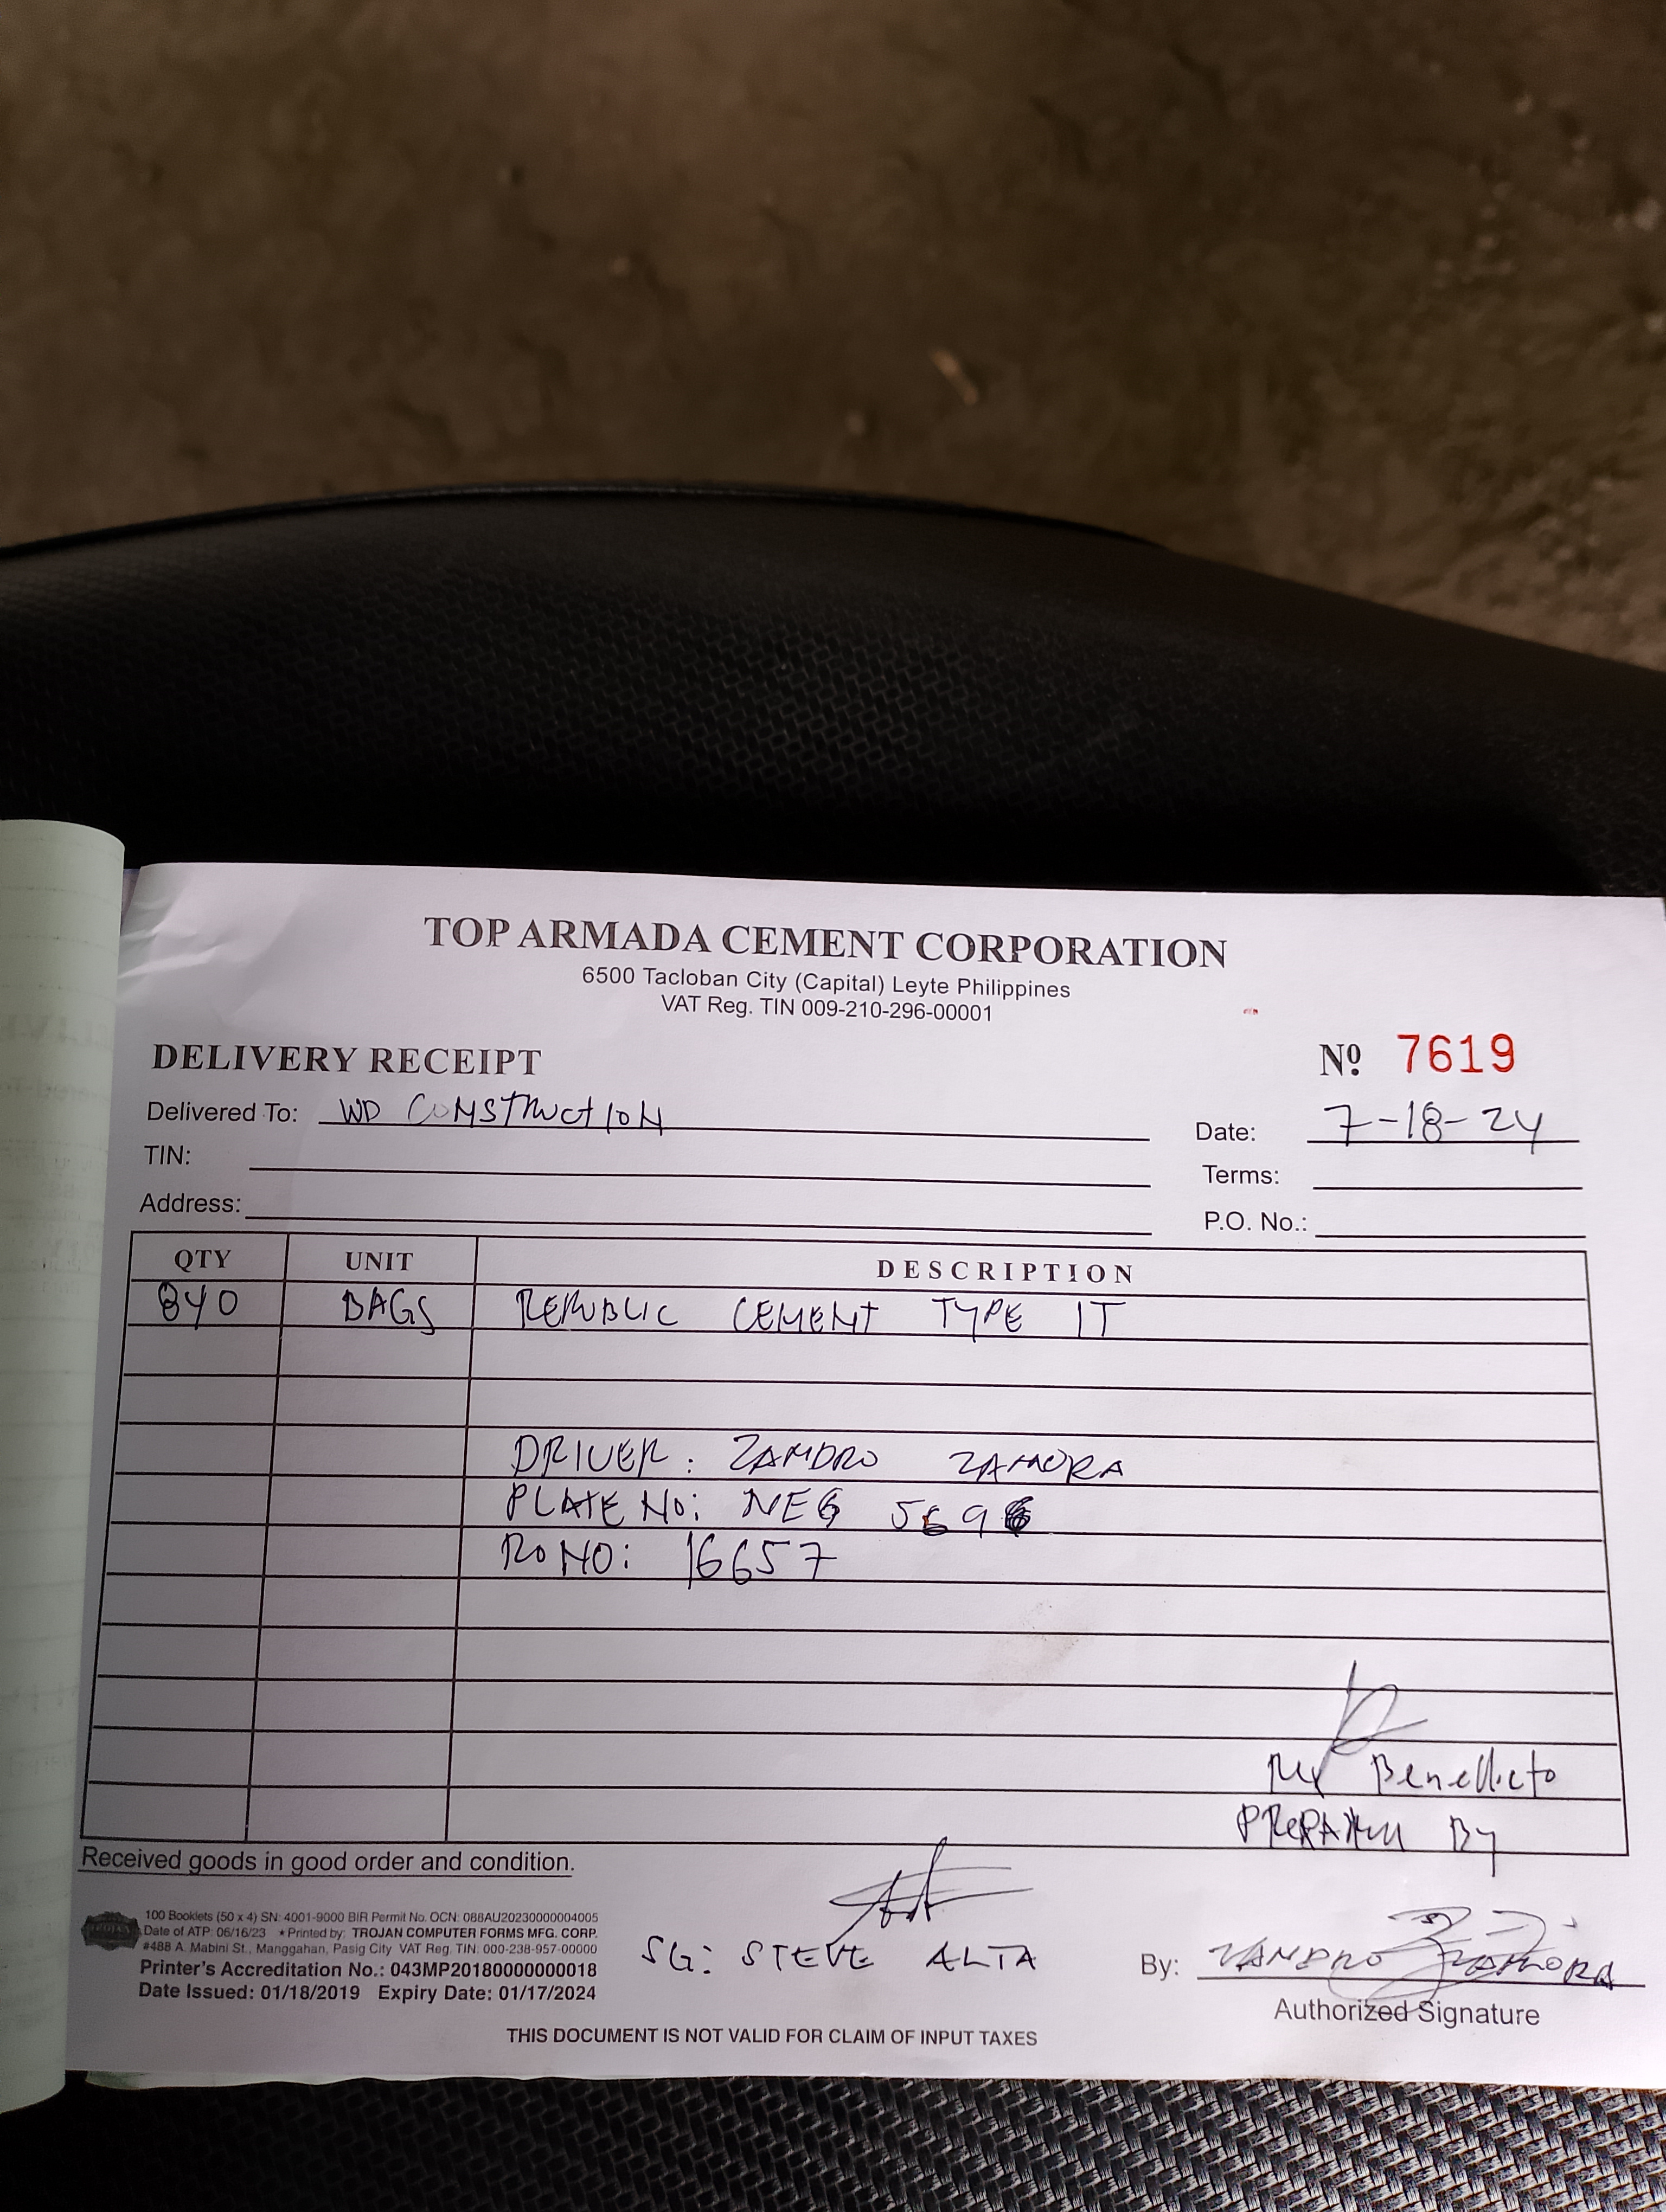 TOP ARMADA CEMENT CORPORATION
6500 Tacloban City (Capital) Leyte Philippines
VAT Reg. TIN 009-210-296-00001
DELIVERY RECEIPT
Nº 7619
Delivered To: WD CONSTRUCTION
Date: 7-18-24
TIN:
Terms:
Address:
P.O. No.:
QTY UNIT DESCRIPTION
840 BAGS REPUBLIC CEMENT TYPE IT
DRIVER: ZANDRO ZAMORA
PLATE NO: NEG 569
RO NO: 16657
Benedicto
PREPARED BY
Received goods in good order and condition.
100 Booklets (50 x 4) SN: 4001-9000 BIR Permit No. OCN: 088AU20230000004005
Date of ATP: 06/16/23 ★Printed by: TROJAN COMPUTER FORMS MFG. CORP.
#488 A. Mabini St., Manggahan, Pasig City VAT Reg. TIN: 000-238-957-00000
Printer's Accreditation No.: 043MP20180000000018
Date Issued: 01/18/2019 Expiry Date: 01/17/2024
SG: STEVE ALTA
By: ZANDRO ZAMORA
Authorized Signature
THIS DOCUMENT IS NOT VALID FOR CLAIM OF INPUT TAXES